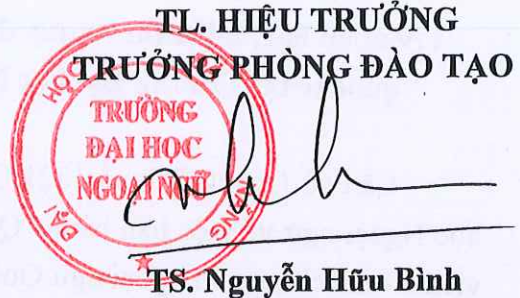 TL. HIỆU TRƯỞNG
TRƯỞNG PHÒNG ĐÀO TẠO
TRƯỜNG
ĐẠI HỌC
NGOẠI NGỮ
TS. Nguyễn Hữu Bình